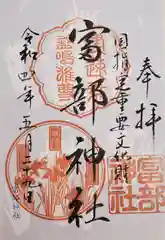 奉拝
国指定重要文化財
富部神社
令和四年五月二十九日
富部
神社